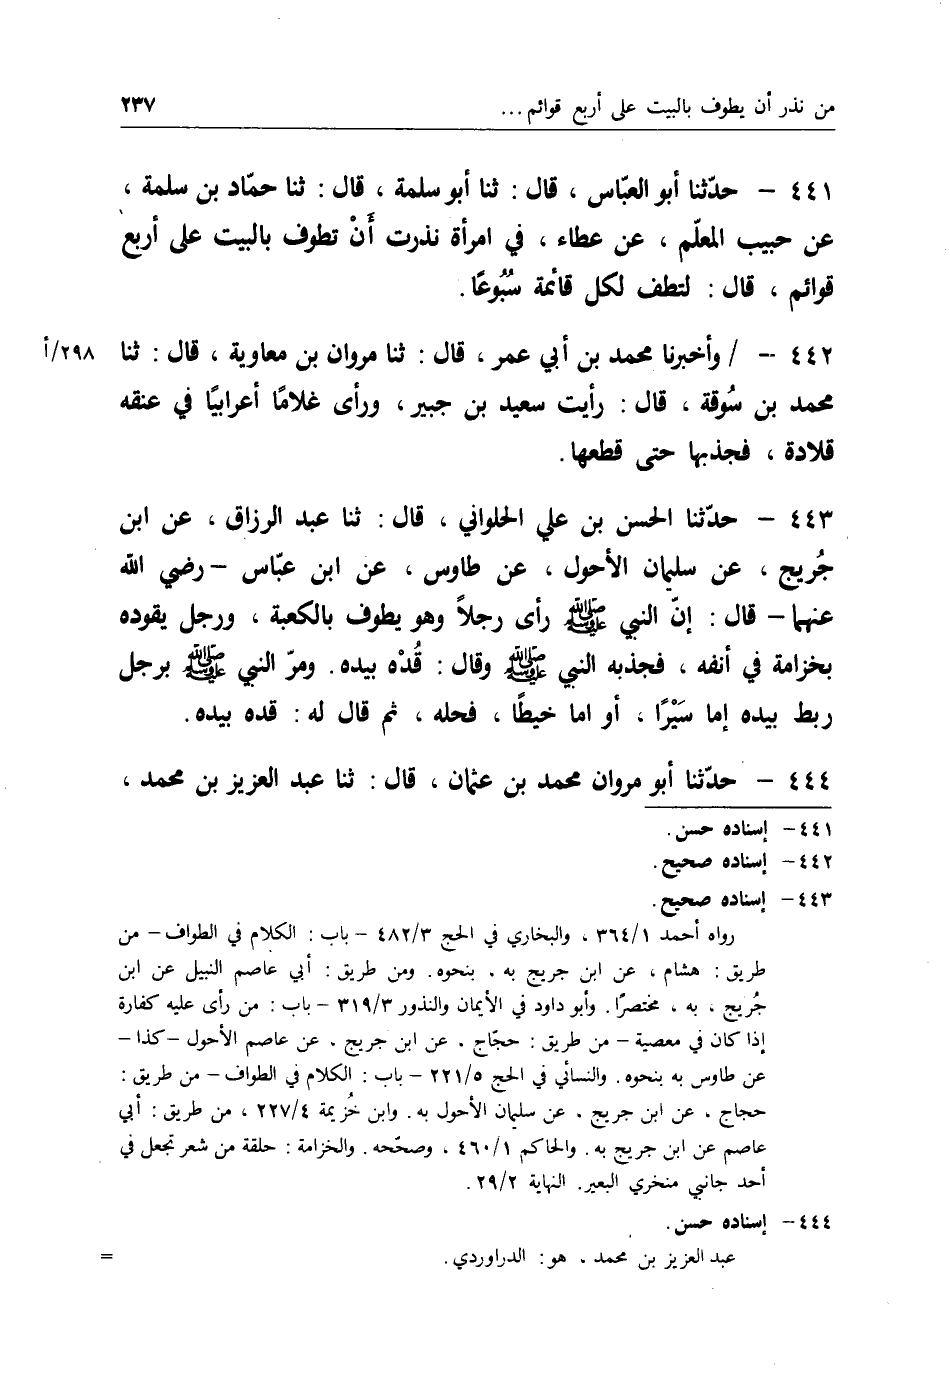 من نذر أن يطوف بالبيت على أربع قوائم... ٢٣٧
٤٤١ - حدّثنا أبو العبّاس ، قال : ثنا أبو سلمة ، قال : ثنا حمّاد بن سلمة ،
عن حبيب المعلّم ، عن عطاء ، في امرأة نذرت أَنْ تطوف بالبيت على أربع
قوائم ، قال : لتطف لكل قائمة سُبُوعًا .
٤٤٢ - / وأخبرنا محمد بن أبي عمر ، قال : ثنا مروان بن معاوية ، قال : ثنا ٢٩٨/أ
محمد بن سُوقة ، قال : رأيت سعيد بن جبير ، ورأى غلامًا أعرابيًا في عنقه
قلادة ، فجذبها حتى قطعها .
٤٤٣ - حدّثنا الحسن بن علي الحلواني ، قال : ثنا عبد الرزاق ، عن ابن
جُريج ، عن سليمان الأحول ، عن طاوس ، عن ابن عبّاس -رضي الله
عنهما- قال : إنّ النبي ﷺ رأى رجلاً وهو يطوف بالكعبة ، ورجل يقوده
بخزامة في أنفه ، فجذبه النبي ﷺ وقال : قُدْه بيده. ومرّ النبي ﷺ برجل
ربط بيده إما سَيْرًا ، أو اما خيطًا ، فحله ، ثم قال له : قده بيده.
٤٤٤ - حدّثنا أبو مروان محمد بن عثمان ، قال : ثنا عبد العزيز بن محمد ،
٤٤١- إسناده حسن.
٤٤٢- إسناده صحيح.
٤٤٣- إسناده صحيح.
رواه أحمد ٣٦٤/١ ، والبخاري في الحج ٤٨٢/٣ - باب : الكلام في الطواف- من
طريق : هشام ، عن ابن جريج به ، بنحوه. ومن طريق : أبي عاصم النبيل عن ابن
جُريج ، به ، مختصرًا. وأبو داود في الأيمان والنذور ٣١٩/٣ - باب : من رأى عليه كفارة
إذا كان في معصية - من طريق : حجّاج ، عن ابن جريج ، عن عاصم الأحول -كذا-
عن طاوس به بنحوه. والنسائي في الحج ٢٢١/٥ - باب : الكلام في الطواف - من طريق :
حجاج ، عن ابن جريج ، عن سليمان الأحول به. وابن خُزيمة ٢٢٧/٤ ، من طريق : أبي
عاصم عن ابن جريج به. والحاكم ٤٦٠/١ ، وصحّحه. والخزامة : حلقة من شعر تجعل في
أحد جانبي منخري البعير. النهاية ٢٩/٢ .
٤٤٤- إسناده حسن.
عبد العزيز بن محمد ، هو : الدراوردي. =